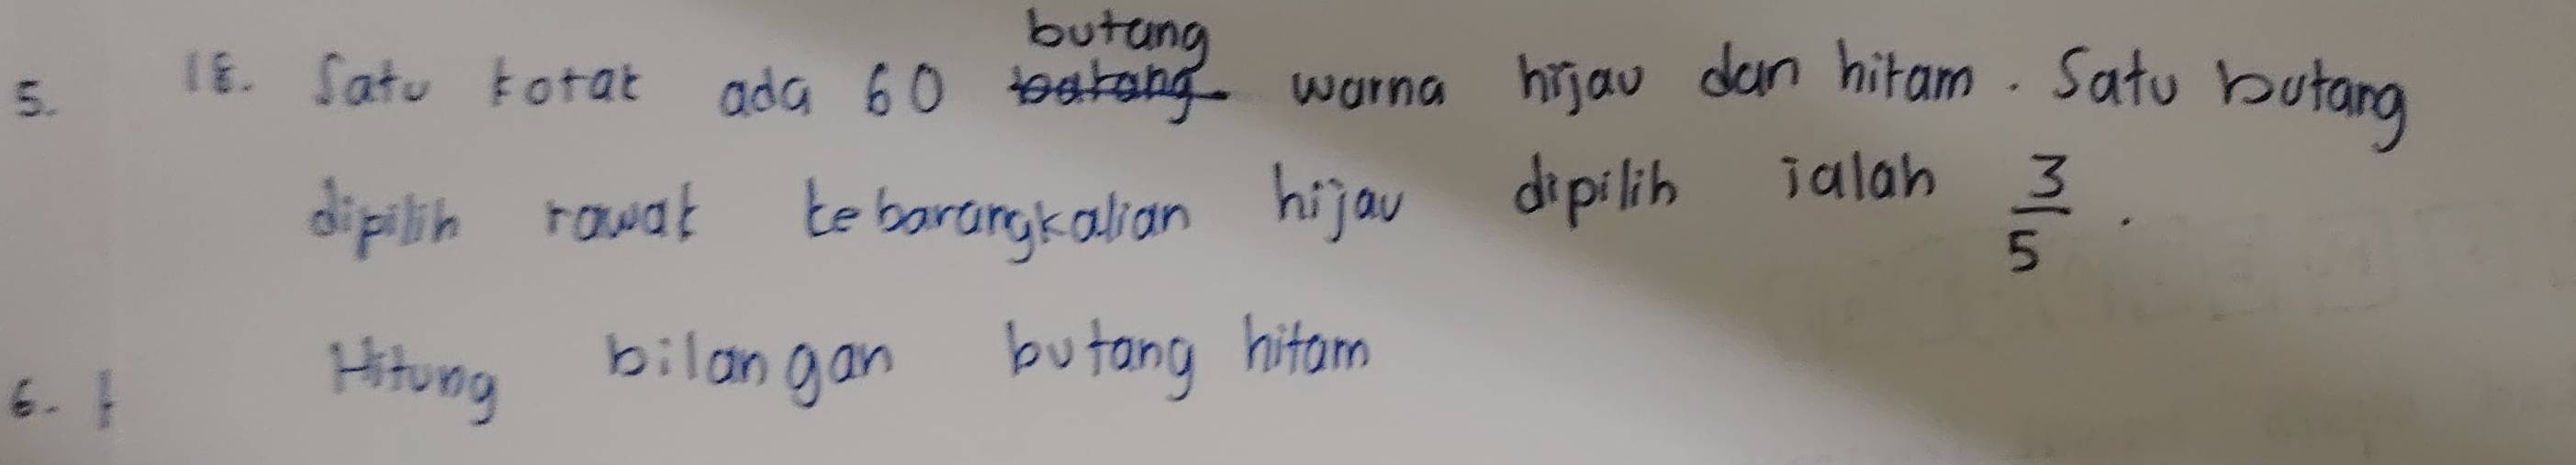 5. 18. Satu kotak ada 60 butang warna hijau dan hitam. Satu butang
dipilih rawak kebarangkalian hijau dipilih ialah 3/5.
Hitung bilangan butang hitam
6.